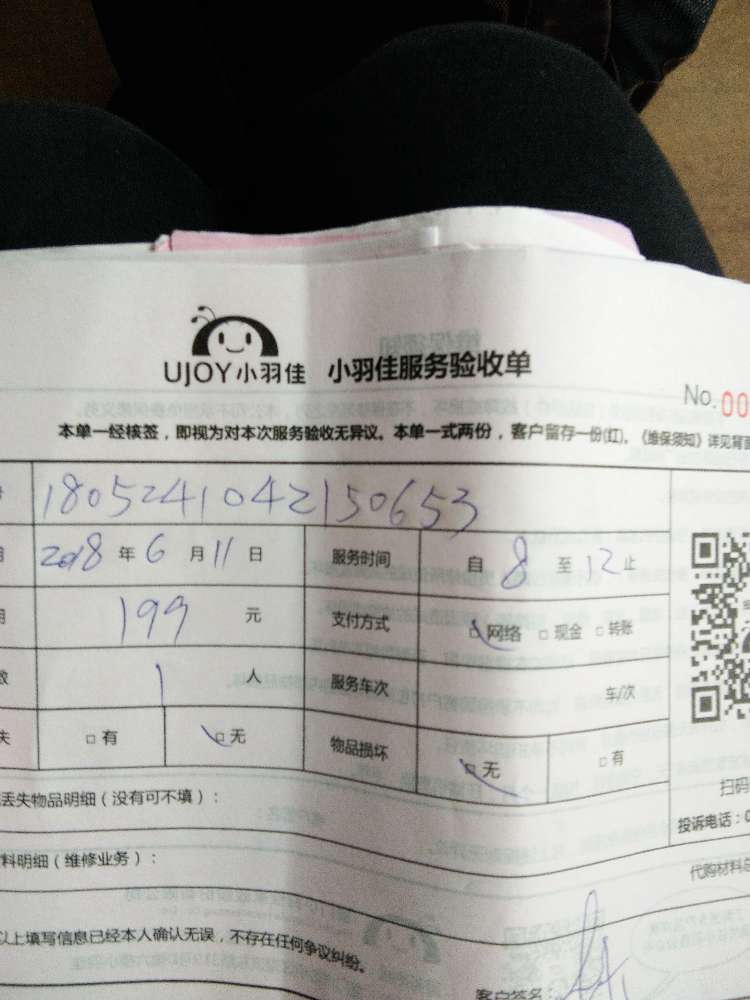 UJOY小羽佳 小羽佳服务验收单
No.00
本单一经核签，即视为对本次服务验收无异议。本单一式两份，客户留存一份(红)。《维保须知》详见背面
1805241042150653
2018 年 6 月 11 日 服务时间 自 8 至 12 止
199 元 支付方式 网络 现金 转账
1 人 服务车次 车/次
失 有 无 物品损坏 无 有
丢失物品明细（没有可不填）： 扫码
投诉电话：0
料明细（维修业务）： 代购材料总
以上填写信息已经本人确认无误，不存在任何争议纠纷。
客户签名：